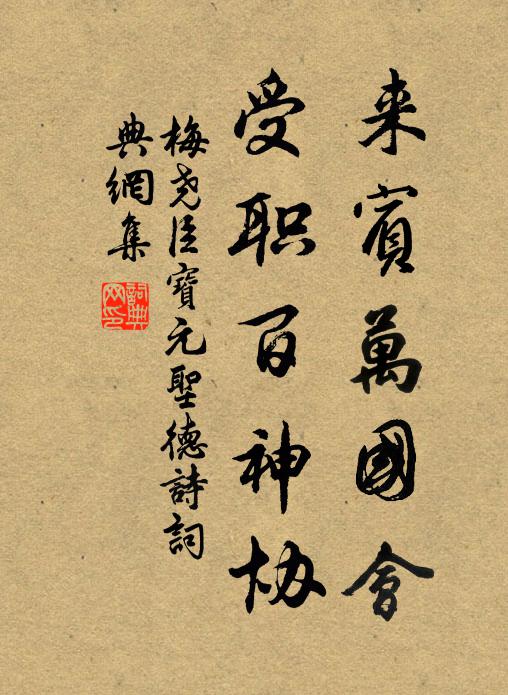 来賓萬國會
受职百神协
梅尧臣寶元聖德詩詞
典網集
詞典
网印